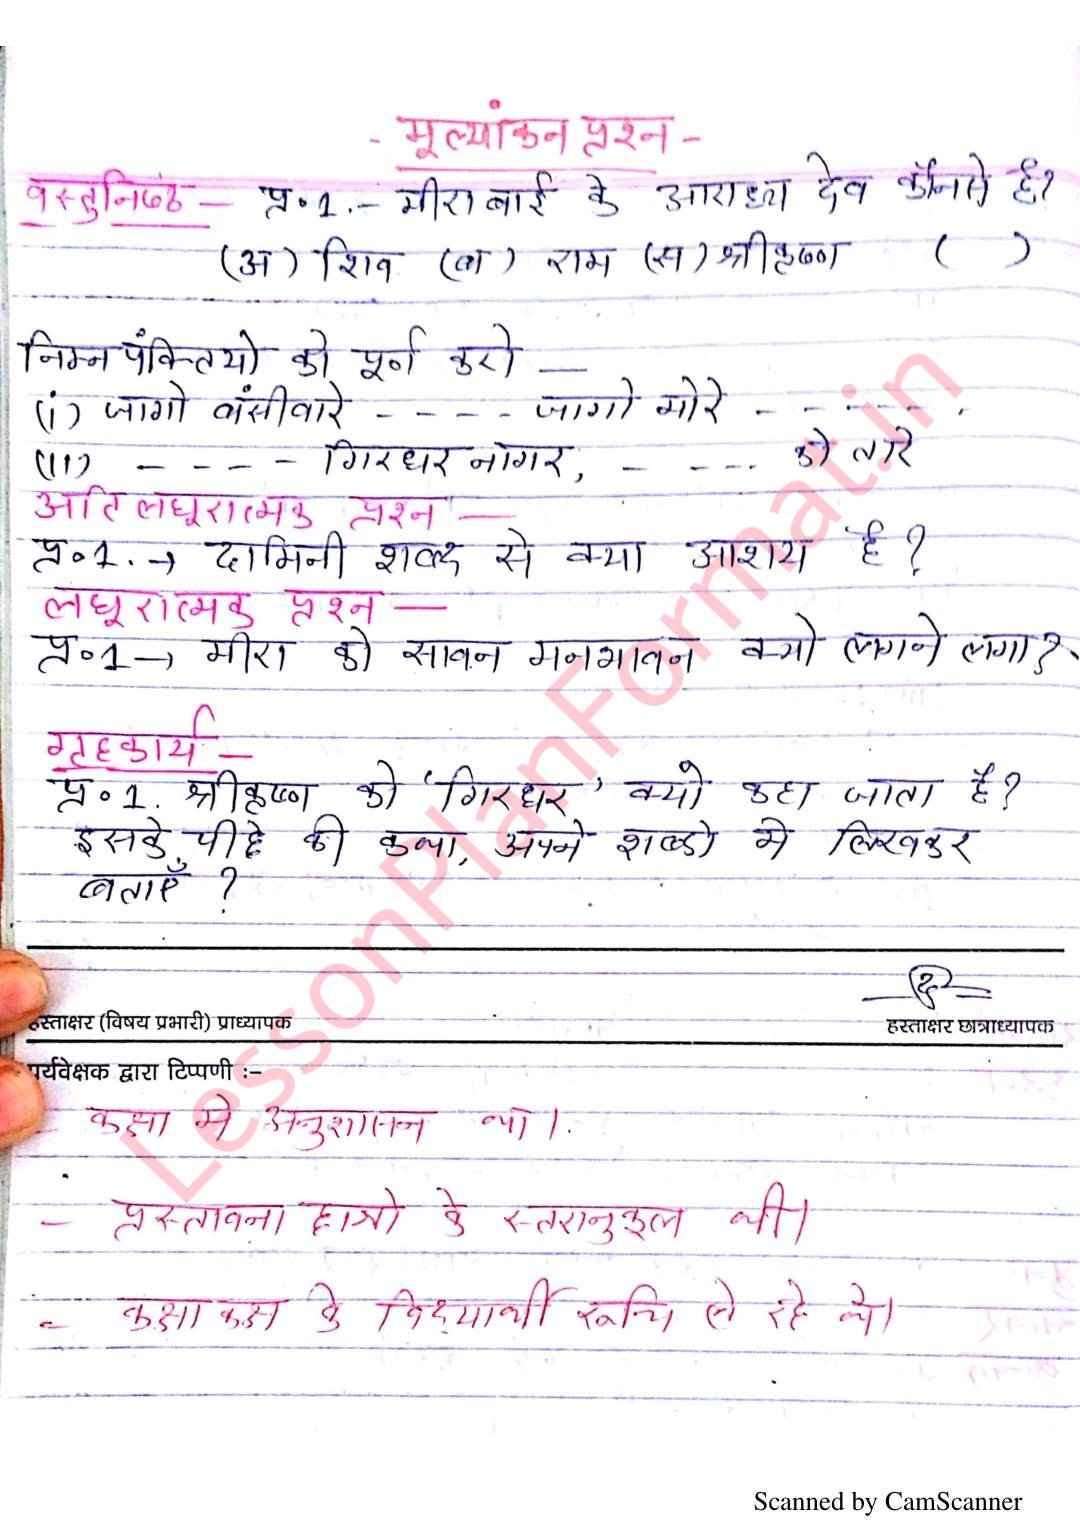 - मूल्यांकन प्रश्न -
वस्तुनिष्ठ - प्र॰1.- मीराबाई के आराध्य देव कौनसे है?
(अ) शिव (ब) राम (स) श्रीकृष्ण ( )
निम्न पंक्तियो को पूर्न करो —
(i) जागो बंसीवारे - - - - जागो मोरे - - - - - .
(ii) - - - - गिरधर नागर, - - - - को तारे
अति लघूरात्मक प्रश्न —
प्र॰1. → दामिनी शब्द से क्या आशय है?
लघूरात्मक प्रश्न —
प्र॰1 → मीरा को सावन मनभावन क्यो लगने लगा?
गृहकार्य -
प्र॰1. श्रीकृष्ण को 'गिरधर' क्यो कहा जाता है?
इसके पीछे की कथा, अपने शब्दो मे लिखकर
बताएँ ?
हस्ताक्षर (विषय प्रभारी) प्राध्यापक
हस्ताक्षर छात्राध्यापक
पर्यवेक्षक द्वारा टिप्पणी :-
कक्षा मे अनुशासन था।
- प्रस्तावना छात्रो के स्तरानुकूल थी।
- कक्षा कक्ष के विध्यार्थी रूचि ले रहे थे।
LessonPlanFormat.in
Scanned by CamScanner